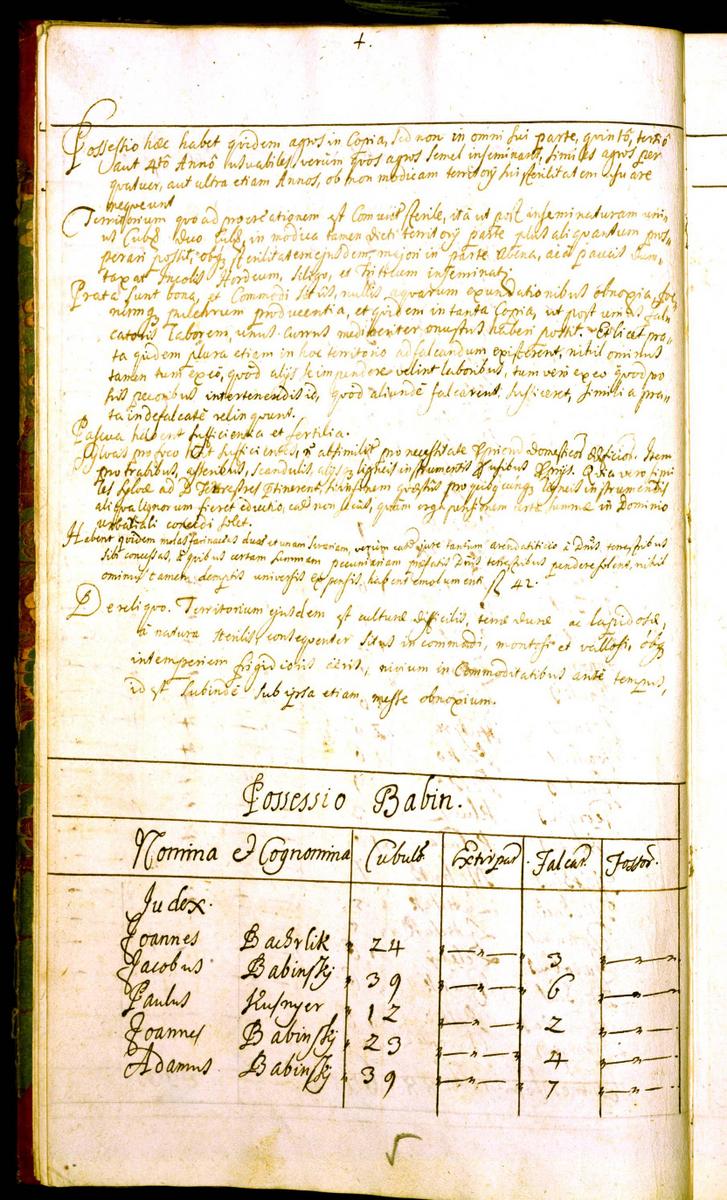 4.
Possessio hæc habet quidem agros in Copia, sed non in omni sui parte, quintô, tertiô
aut 4tô Annô usuabiles, verum quos agros semel inseminant, similes agros per
quatuor, aut ultra etiam Annos, ob non modicam territorij sui sterilitatem usuare
nequeunt
Territorium quoad procreationem est sterile, ità ut post inseminaturam uni-
us Cubli duo Cubli, in modica tamen dicti territorij parte plus aliquantum pros-
perari possit, ob sterilitatem ejusdem, majori in parte Avena, ac à paucis dun-
taxat Incolis Hordeum, Siligo, et Triticum inseminat.
Prata sunt bona, et Commodi sitûs, nullis aquarum exundationibus obnoxia, foe-
numq pulchrum producentia, et quidem in tanta Copia, ut post unius fal-
catoris Laborem, unus Currus mediocriter onustus haberi possit. Et licet pra-
ta quidem plura etiam in hoc territorio ad falcandum existerent, nihil ominus
tamen tum exeo, quod alijs se impendere velint laboribus, tum verò exeo quod pro
suis pecoribus intertenendis id, quod aliunde falcarent, sufficeret, similia pra-
ta indefalcata relinquunt.
Pascua habent sufficientia et fertilia.
Sylvas pro foco sufficientes, pro necessitate Domestico Item
pro trabibus, asseribus, scandulis, alijsq ligneis instrumentis usibus vero simi
les sylvæ ad D Terrestres pertinerent, si usionem quæstus pro quibuscunq ligneis instrumentis
aliqua lignorum fieret eductio, ea non secus, quam erga pensionem certæ summæ in Dominio
concedi solet.
Habent quidem molas farinaceas duas et unam serrariam, verum eas jure tantum arendatitio à Dnis terrestribus
sibi concessas, quibus certam summam pecuniariam præfatis Dnis terrestribus pendere solent, nihil
ominus tamen demptis universis expensis, habent emolumenti fl 42.
De reliquo. Territorium ejusdem est culturæ difficilis, terræ duræ ac lapidosæ,
à natura sterilis, consequenter sitûs in commodi, montosi et vallosi, obq
intemperiem frigidioris aëris, nivium in Commoditatibus ante tempus,
id est subinde sub ipsa etiam messe obnoxium.
Possessio Babin.
Nomina et Cognomina Cubulor. Extirpat. Falcat. Fossor.
Judex.
Joannes Bachrlik " 24 —"— 3 —"—
Jacobus Babinskj " 39 —"— 6 —"—
Paulus Kusnyer " 12 —"— 2 —"—
Joannes Babinskj " 23 —"— 4 —"—
Adamus Babinskj " 39 —"— 7 —"—